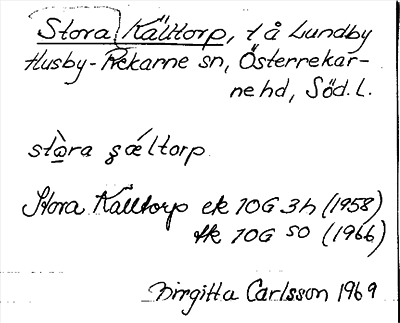 Stora Källtorp, t å Lundby
Husby-Rekarne sn, Österrekar-
ne hd, Söd. l.
stàra ʂǽltorp
Stora Källtorp ek 10G 3h (1958)
tk 10G SO (1966)
Birgitta Carlsson 1969